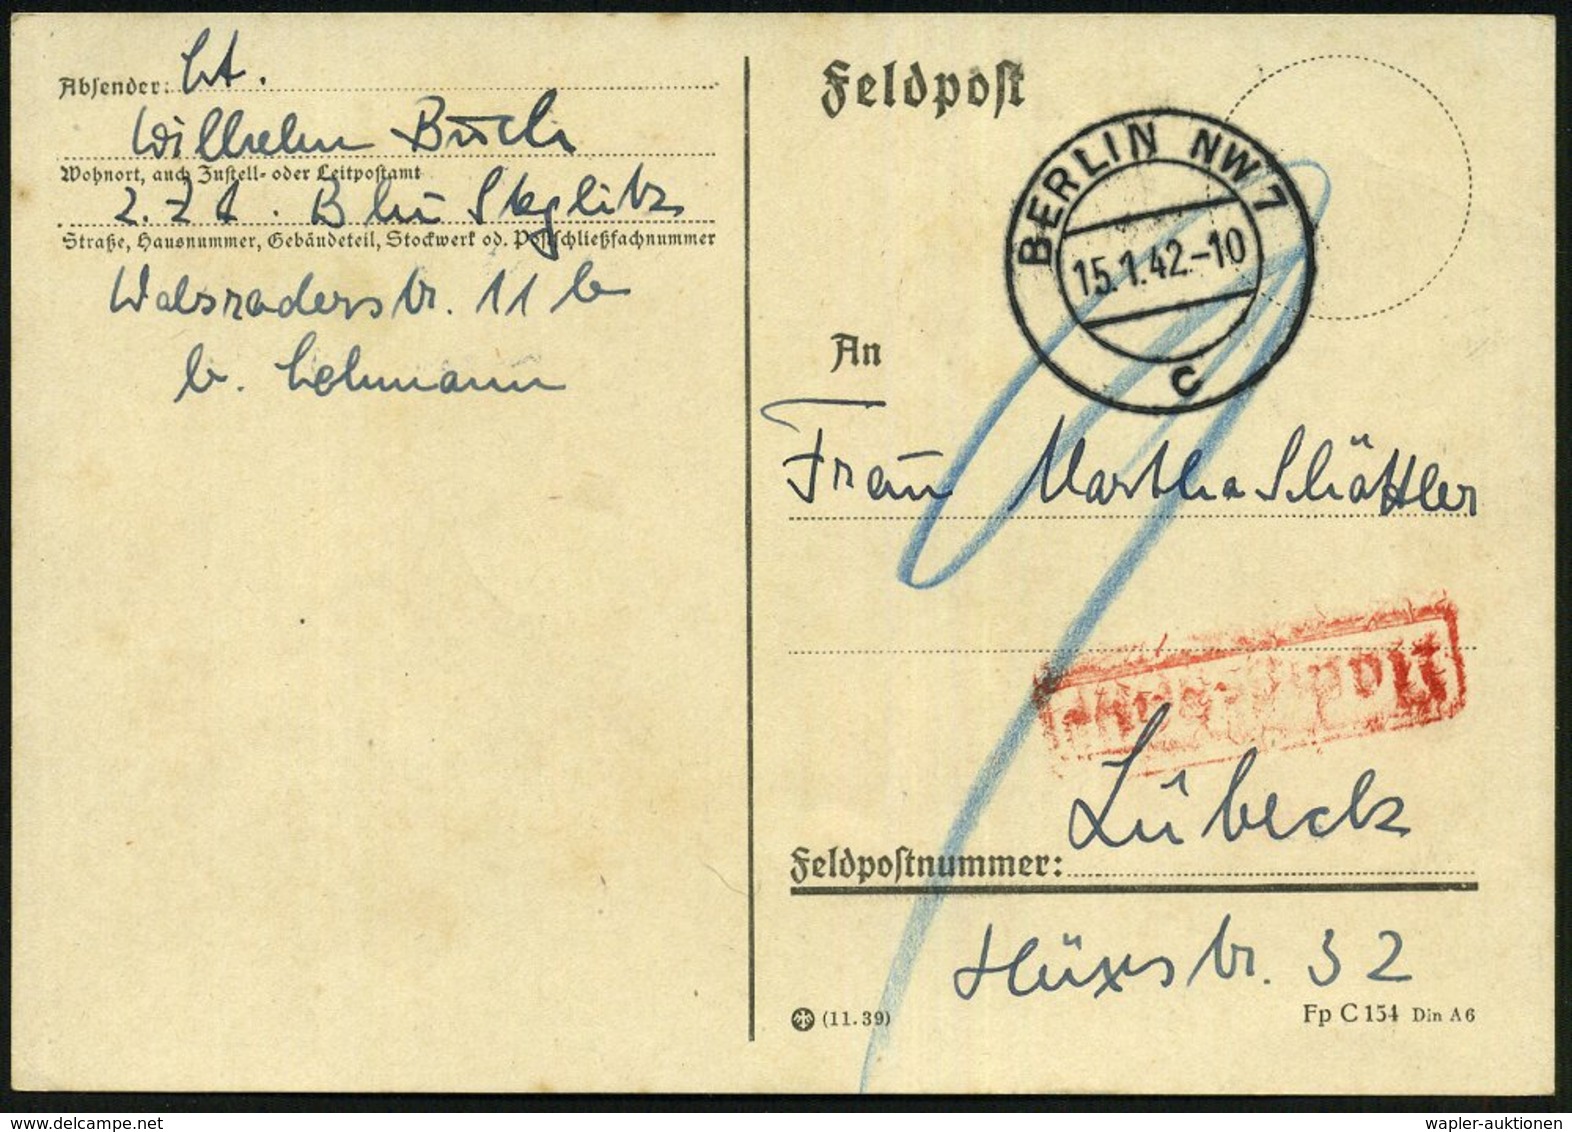 Absender: Lt.
Wilhelm Buch
Wohnort, auch Zustell- oder Leitpostamt
z. Zt. Bln Steglitz
Straße, Hausnummer, Gebäudeteil, Stockwerk od. Postschließfachnummer
Walsroderstr. 11 b
b. Lehmann
Feldpost
BERLIN NW 7
15.1.42.-10
c
An
Frau Martha Schöttler
Lübeck
Feldpostnummer:
Hüxstr. 32
(11.39)
Fp C 154 Din A6
wapler-auktionen